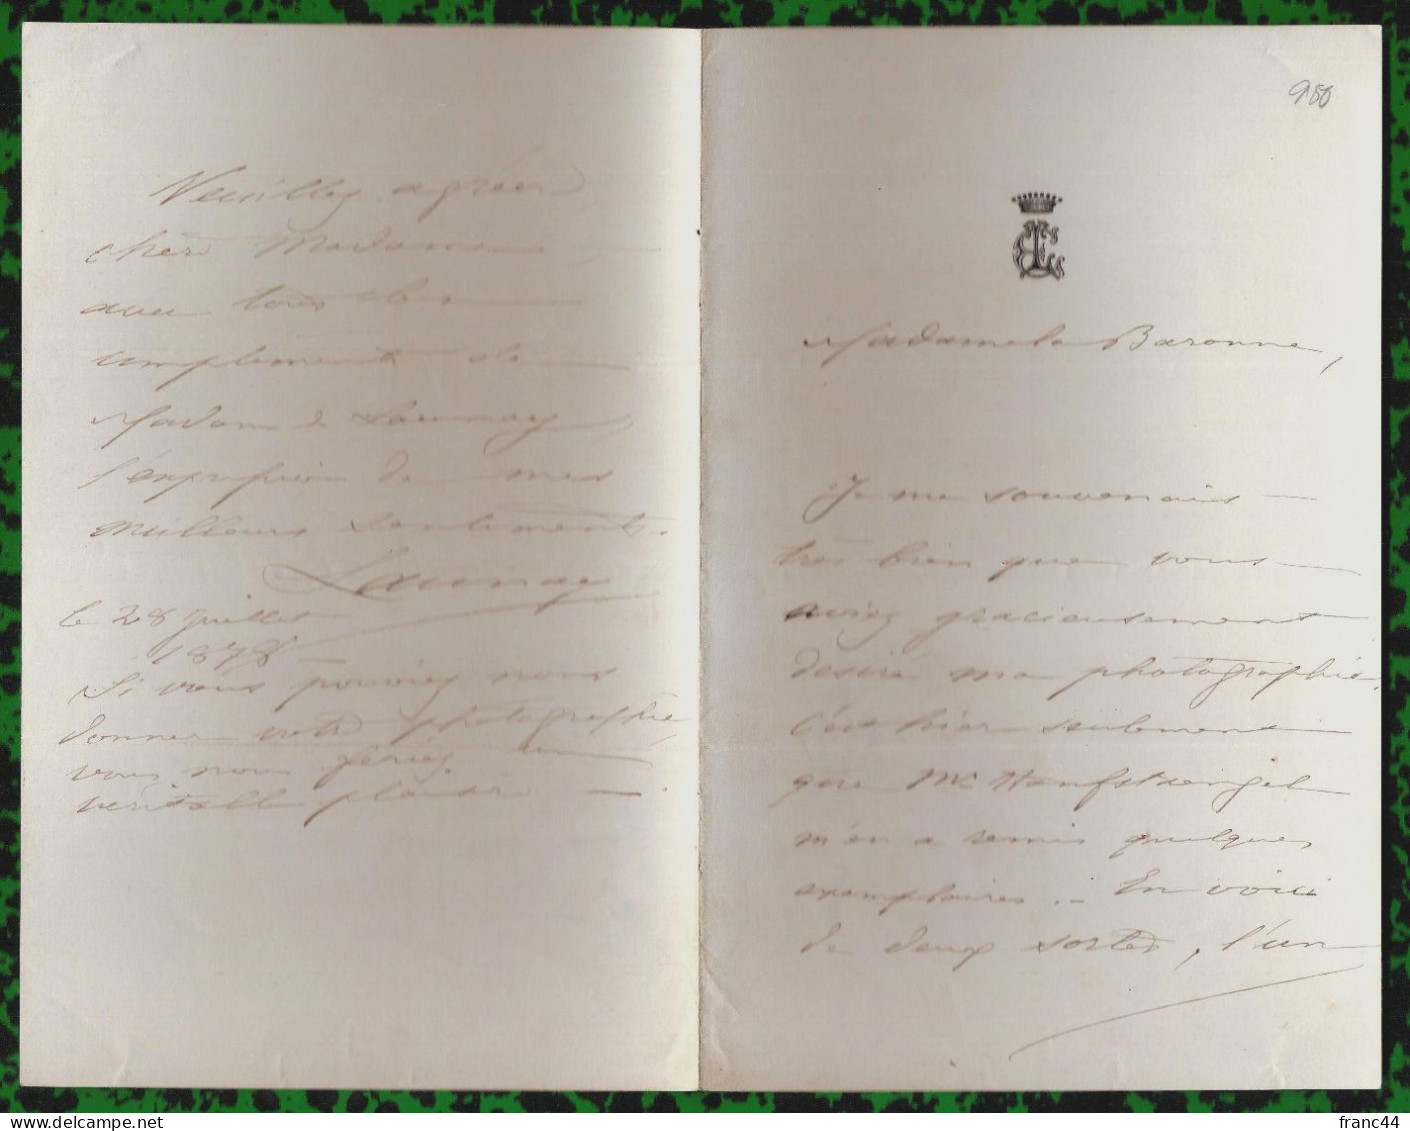 Veuillez agréer
chère Madame
avec tous les
compliments de
Madame de Launay
l'expression de mes
meilleurs sentiments.
Launay
le 28 juillet
1878
Si vous pouviez nous
donner votre photographie,
vous nous feriez un
véritable plaisir
950
Madame la Baronne,
Je me souvenais
très bien que vous
aviez gracieusement
desiré ma photographie.
C'est hier seulement
que Mr Hanfstaengel
m'en a remis quelques
exemplaires. - En voici
de deux sortes, l'un
franc44